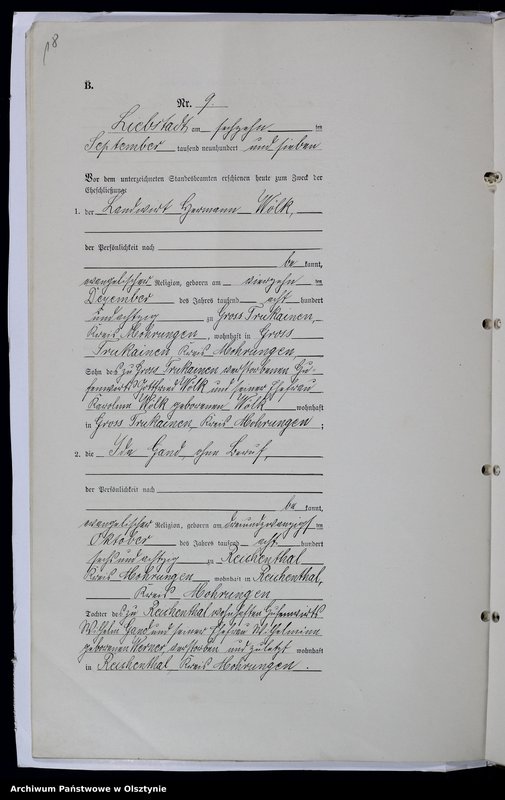 B.
Nr. 9.
Liebstadt, am sechzehn ten
September tausend neunhundert und sieben
Vor dem unterzeichneten Standesbeamten erschienen heute zum Zweck der
Eheschließung:
1. der Landwirt Hermann Wölk,
der Persönlichkeit nach
be kannt,
evangelischer Religion, geboren am vierzehn ten
Dezember des Jahres tausend acht hundert
undachtzig zu Gross Trukainen,
Kreis Mohrungen, wohnhaft in Gross
Trukainen, Kreis Mohrungen
Sohn des zu Gross Trukainen verstorbenen Hu-
fenwirts Gottfried Wölk und seiner Ehefrau
Karoline Wölk geborenen Wölk wohnhaft
in Gross Trukainen, Kreis Mohrungen;
2. die Ida Gand, ohne Beruf,
der Persönlichkeit nach
be kannt,
evangelischer Religion, geboren am dreiundzwanzigsten
Oktober des Jahres tausend acht hundert
sechsundachtzig zu Reichenthal
Kreis Mohrungen, wohnhaft in Reichenthal,
Kreis Mohrungen
Tochter des zu Reichenthal wohnhaften Hufenwirts
Wilhelm Gand und seiner Ehefrau Wilhelmine
geborenen Werner, verstorben und zuletzt wohnhaft
in Reichenthal, Kreis Mohrungen.
Archiwum Państwowe w Olsztynie